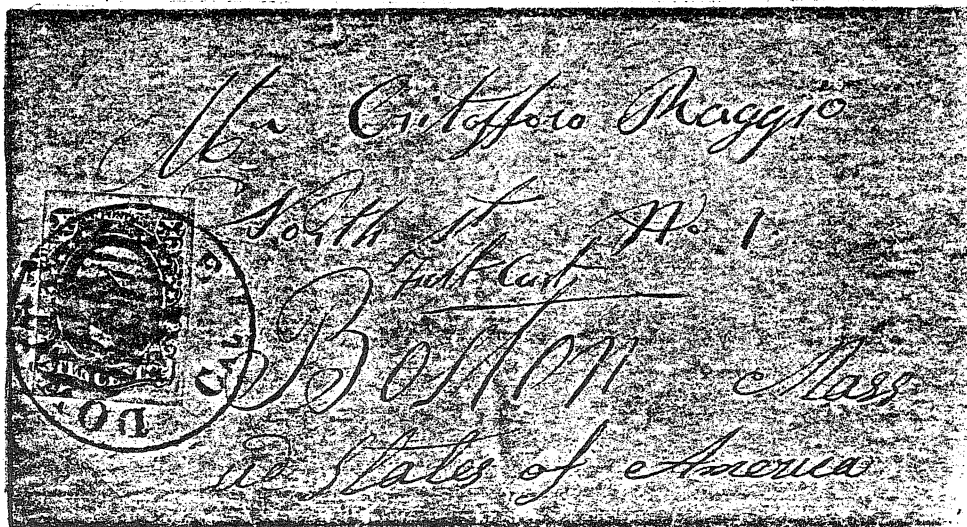 Mr Cristofforo Raggio
North st No. 1
Boston Mass
ud States of America
CAL